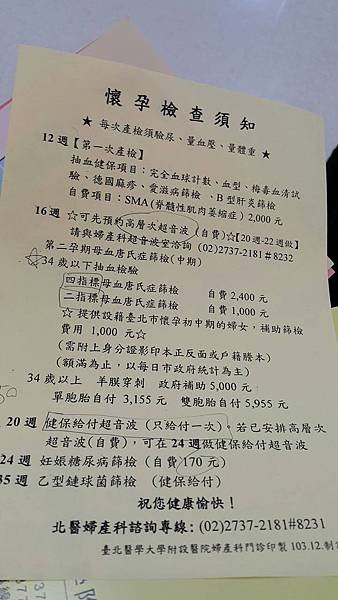 懷孕檢查須知
★ 每次產檢須驗尿、量血壓、量體重 ★
12週【第一次產檢】
抽血健保項目：完全血球計數、血型、梅毒血清試
驗、德國麻疹、愛滋病篩檢、B型肝炎篩檢
自費項目：SMA(脊髓性肌肉萎縮症) 2,000元
16週 ☆可先預約高層次超音波(自費)☆【20週-22週做】
請與婦產科超音波室洽詢 (02)2737-2181#8232
第二孕期母血唐氏症篩檢(中期)
34歲以下抽血檢驗
四指標母血唐氏症篩檢 自費 2,400元
二指標母血唐氏症篩檢 自費 1,000元
☆ 提供設籍臺北市懷孕初中期的婦女，補助篩檢
費用 1,000元☆
(需附上身分證影印本正反面或戶籍謄本)
(額滿為止，以每日市政府統計為主)
34歲以上 羊膜穿刺 政府補助 5,000元
單胞胎自付 3,155元 雙胞胎自付 5,955元
20週 健保給付超音波(只給付一次)。若已安排高層次
超音波(自費)，可在24週做健保給付超音波
24週 妊娠糖尿病篩檢 (自費170元)
35週 乙型鏈球菌篩檢 (健保給付)
祝您健康愉快！
北醫婦產科諮詢專線：(02)2737-2181#8231
臺北醫學大學附設醫院婦產科門診印製 103.12.制